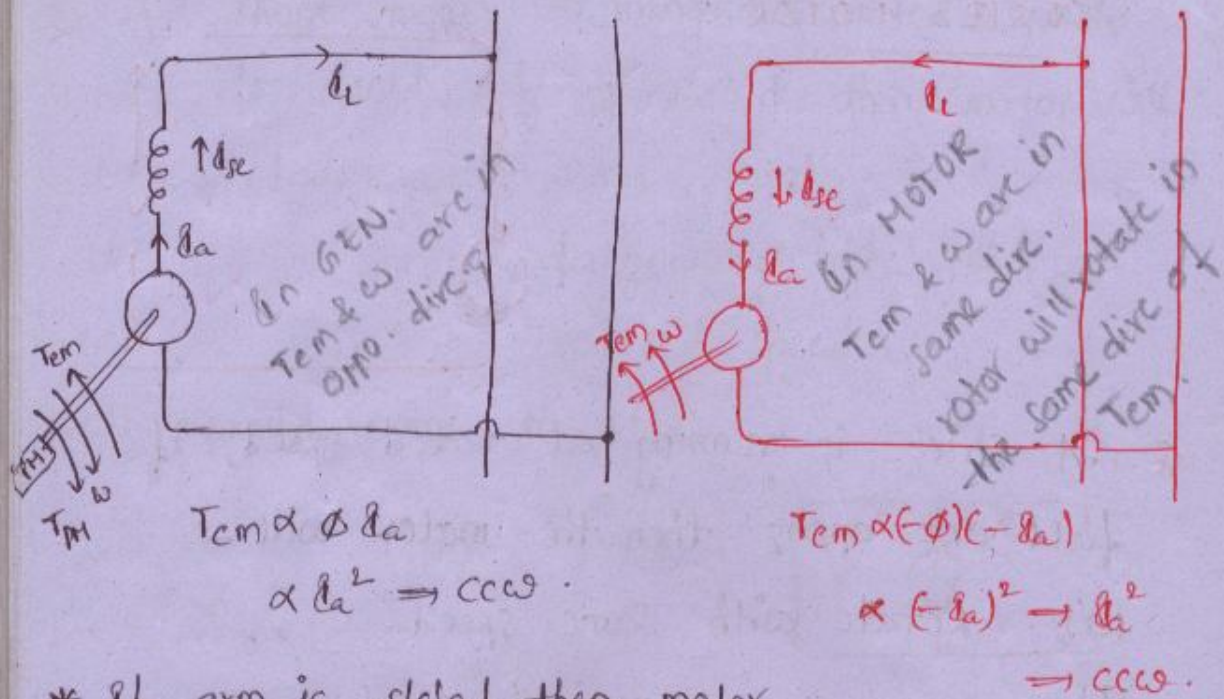 I_L
↑I_se
I_a
In GEN.
Tem & ω are in
oppo. dirc
Tem
PM
ω
T_PM
Tem ∝ ϕ I_a
∝ I_a² ⇒ CCW.
I_L
↓I_se
I_a
In MOTOR
Tem & ω are in
same dirc.
rotor will rotate in
the same dirc of
Tem.
Tem ω
Tem ∝(-ϕ)(-I_a)
∝ (-I_a)² → I_a²
⇒ CCW.
* If arm is then motor